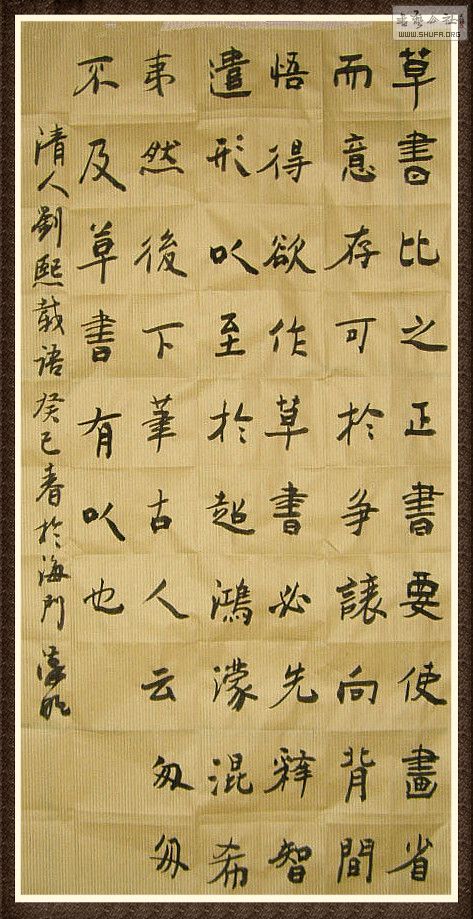 草書比之正書要使畫省
而意存可於争讓向背間
悟得欲作草書必先釋智
遣形以至於超鴻濛混希
夷然後下筆古人云匆匆
不及草書有以也
清人劉熙載語癸巳春於海門
WWW.SHUFA.ORG